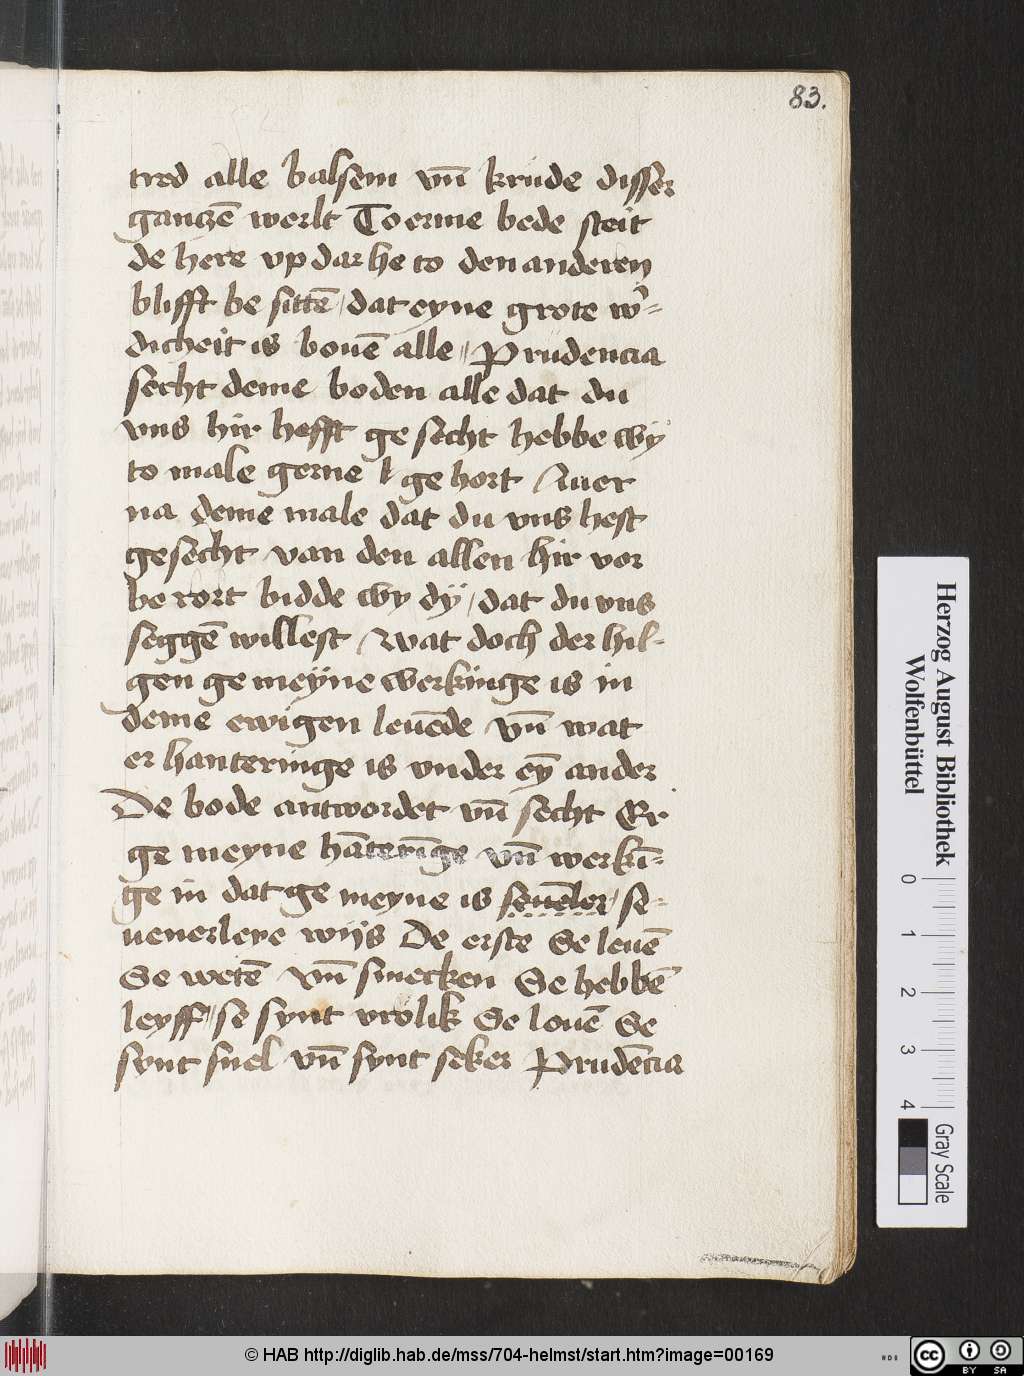 83.
tred alle balsem vn̄ krude disser
ganczē werlt To erme bede steit
de here vp dar he to den anderen
blifft be sittē / dat eyne grote w̓=
dicheit is bouē alle // Prudencia
secht deme boden alle dat du
vns hir hefft ge secht hebbe wy
to male gerne ge hort / Auer
na deme male dat du vns hest
gesecht van den allen hir vor
be rort bidde wy dÿ / dat du vns
seggē willest / wat doch der hil-
gen ge meÿne werkinge is in
deme ewigen leuēde vn̄ wat
er hanteringe is vnder eȳ ander
De bode antwordet vn̄ secht Er
ge meyne hāterīge vn̄ werkī=
ge in dat ge meyne is seuēler / se=
uenerleye wijs De erste Se leuē
Se wetē vn̄ smecken Se hebbē
leyff // se synt vrolik Se louē Se
synt snel vn̄ synt seker Prudēcia
Herzog August Bibliothek
Wolfenbüttel
0 1 2 3 4
Gray Scale
© HAB http://diglib.hab.de/mss/704-helmst/start.htm?image=00169
cc BY SA